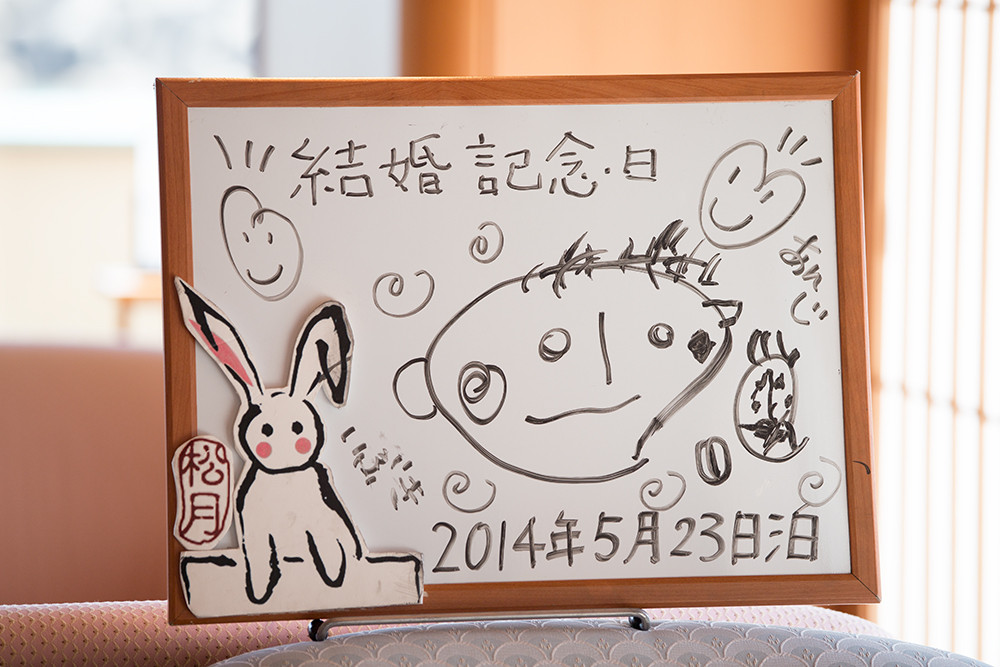 結婚記念日
松月
2014年5月23日泊